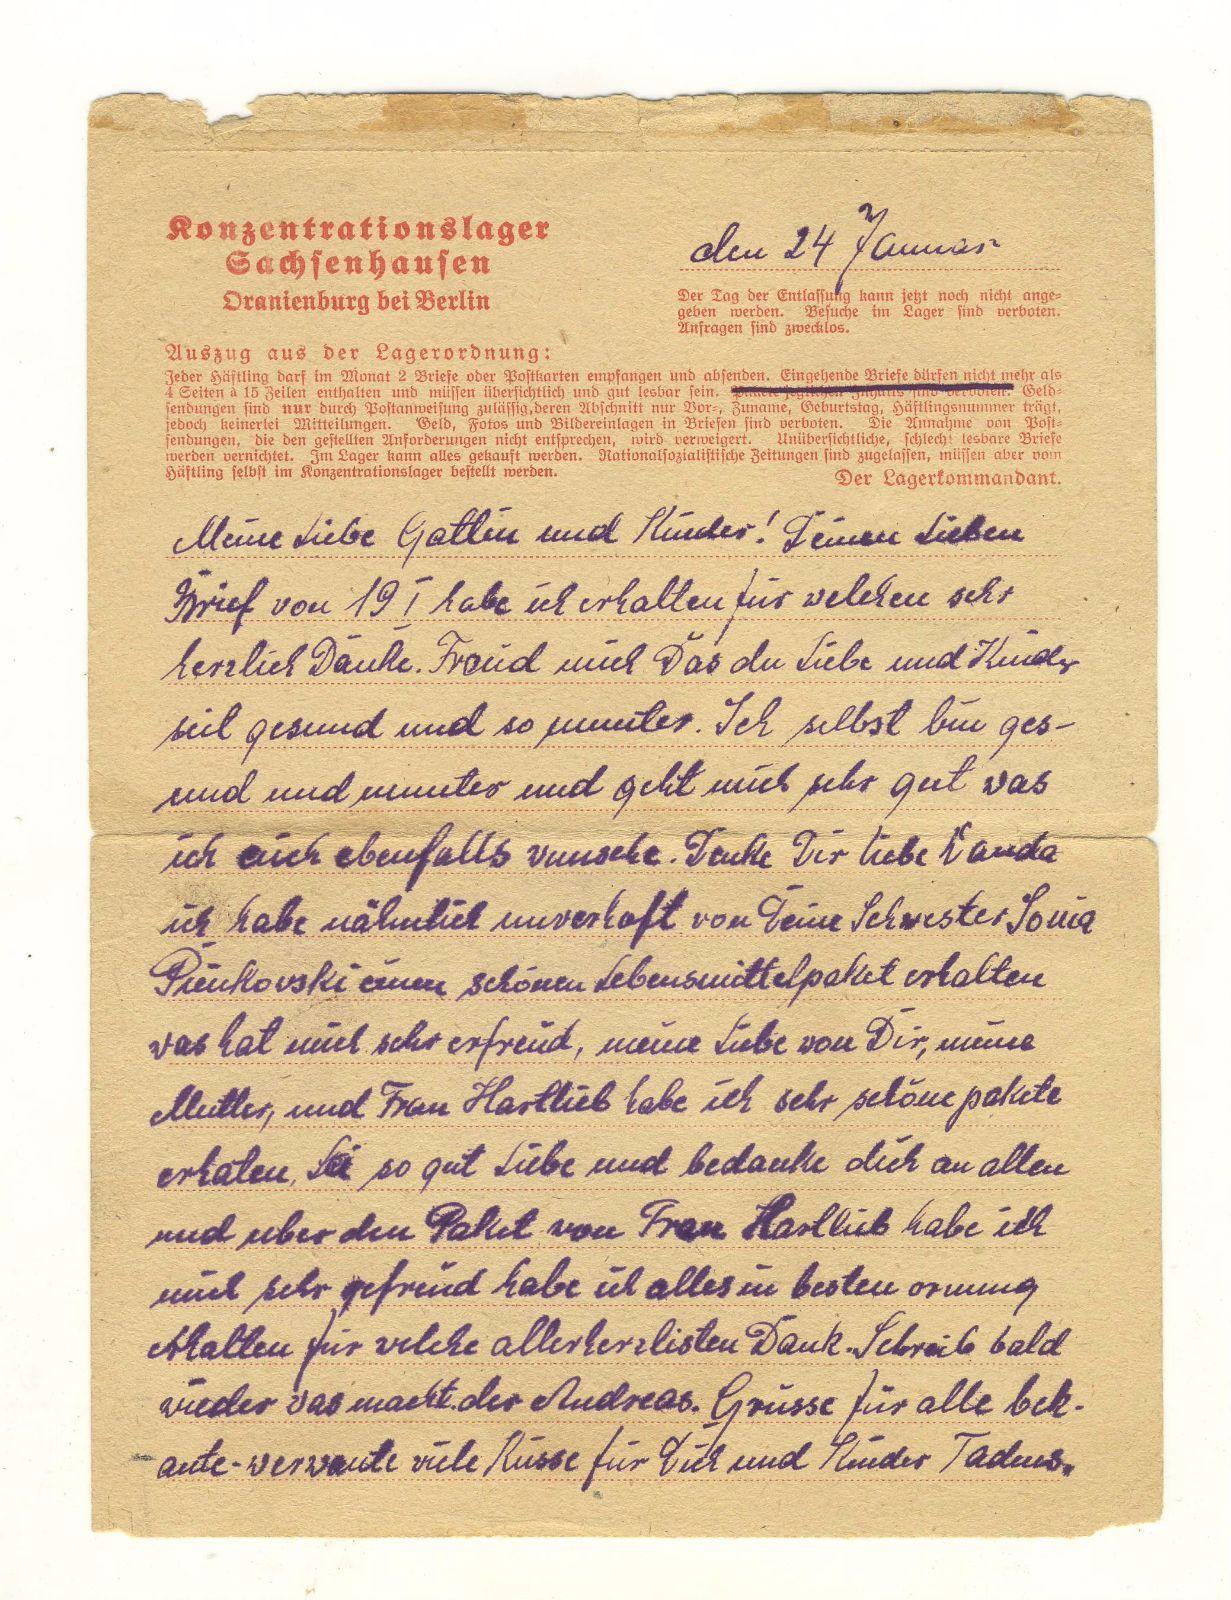 Konzentrationslager
Sachsenhausen
Oranienburg bei Berlin
den 24 Januar
Der Tag der Entlassung kann jetzt noch nicht ange-
geben werden. Besuche im Lager sind verboten.
Anfragen sind zwecklos.
Auszug aus der Lagerordnung:
Jeder Häftling darf im Monat 2 Briefe oder Postkarten empfangen und absenden. Eingehende Briefe dürfen nicht mehr als
4 Seiten à 15 Zeilen enthalten und müssen übersichtlich und gut lesbar sein. Pakete jeglichen Inhalts sind verboten. Geld-
sendungen sind nur durch Postanweisung zulässig, deren Abschnitt nur Vor-, Zuname, Geburtstag, Häftlingsnummer trägt,
jedoch keinerlei Mitteilungen. Geld, Fotos und Bildereinlagen in Briefen sind verboten. Die Annahme von Post-
sendungen, die den gestellten Anforderungen nicht entsprechen, wird verweigert. Unübersichtliche, schlecht lesbare Briefe
werden vernichtet. Im Lager kann alles gekauft werden. Nationalsozialistische Zeitungen sind zugelassen, müssen aber vom
Häftling selbst im Konzentrationslager bestellt werden.
Der Lagerkommandant.
Meine Liebe Gattin und Kinder! Deinen Lieben
Brief von 19 I habe ich erhalten für welchen sehr
herzlich Danke. Freud mich Das du Liebe und Kinder
seit gesund und so munter. Ich selbst bin ges-
und und munter und geht mich sehr gut was
ich euch ebenfalls vunsche. Denke Dir liebe Vanda
ich habe nähmlich unverhoft von Deine Schwester Sonia
Pienkovski einen schönen Lebensmittelpaket erhalten
was hat mich sehr erfreud, meine Liebe von Dir, meine
Mutter, und Frau Hartlieb habe ich sehr schöne pakete
erhaten, Sei so gut Liebe und bedanke dich an allen
und uber den Paket von Frau Hartlieb habe ich
mich sehr gefreud habe ich alles in besten ornung
erhalten für welche allerherzlisten Dank. Schreib bald
wieder vas macht der Andreas. Grüsse für alle bek-
ante-verwante viele Küsse für Dich und Kinder Tadeus.